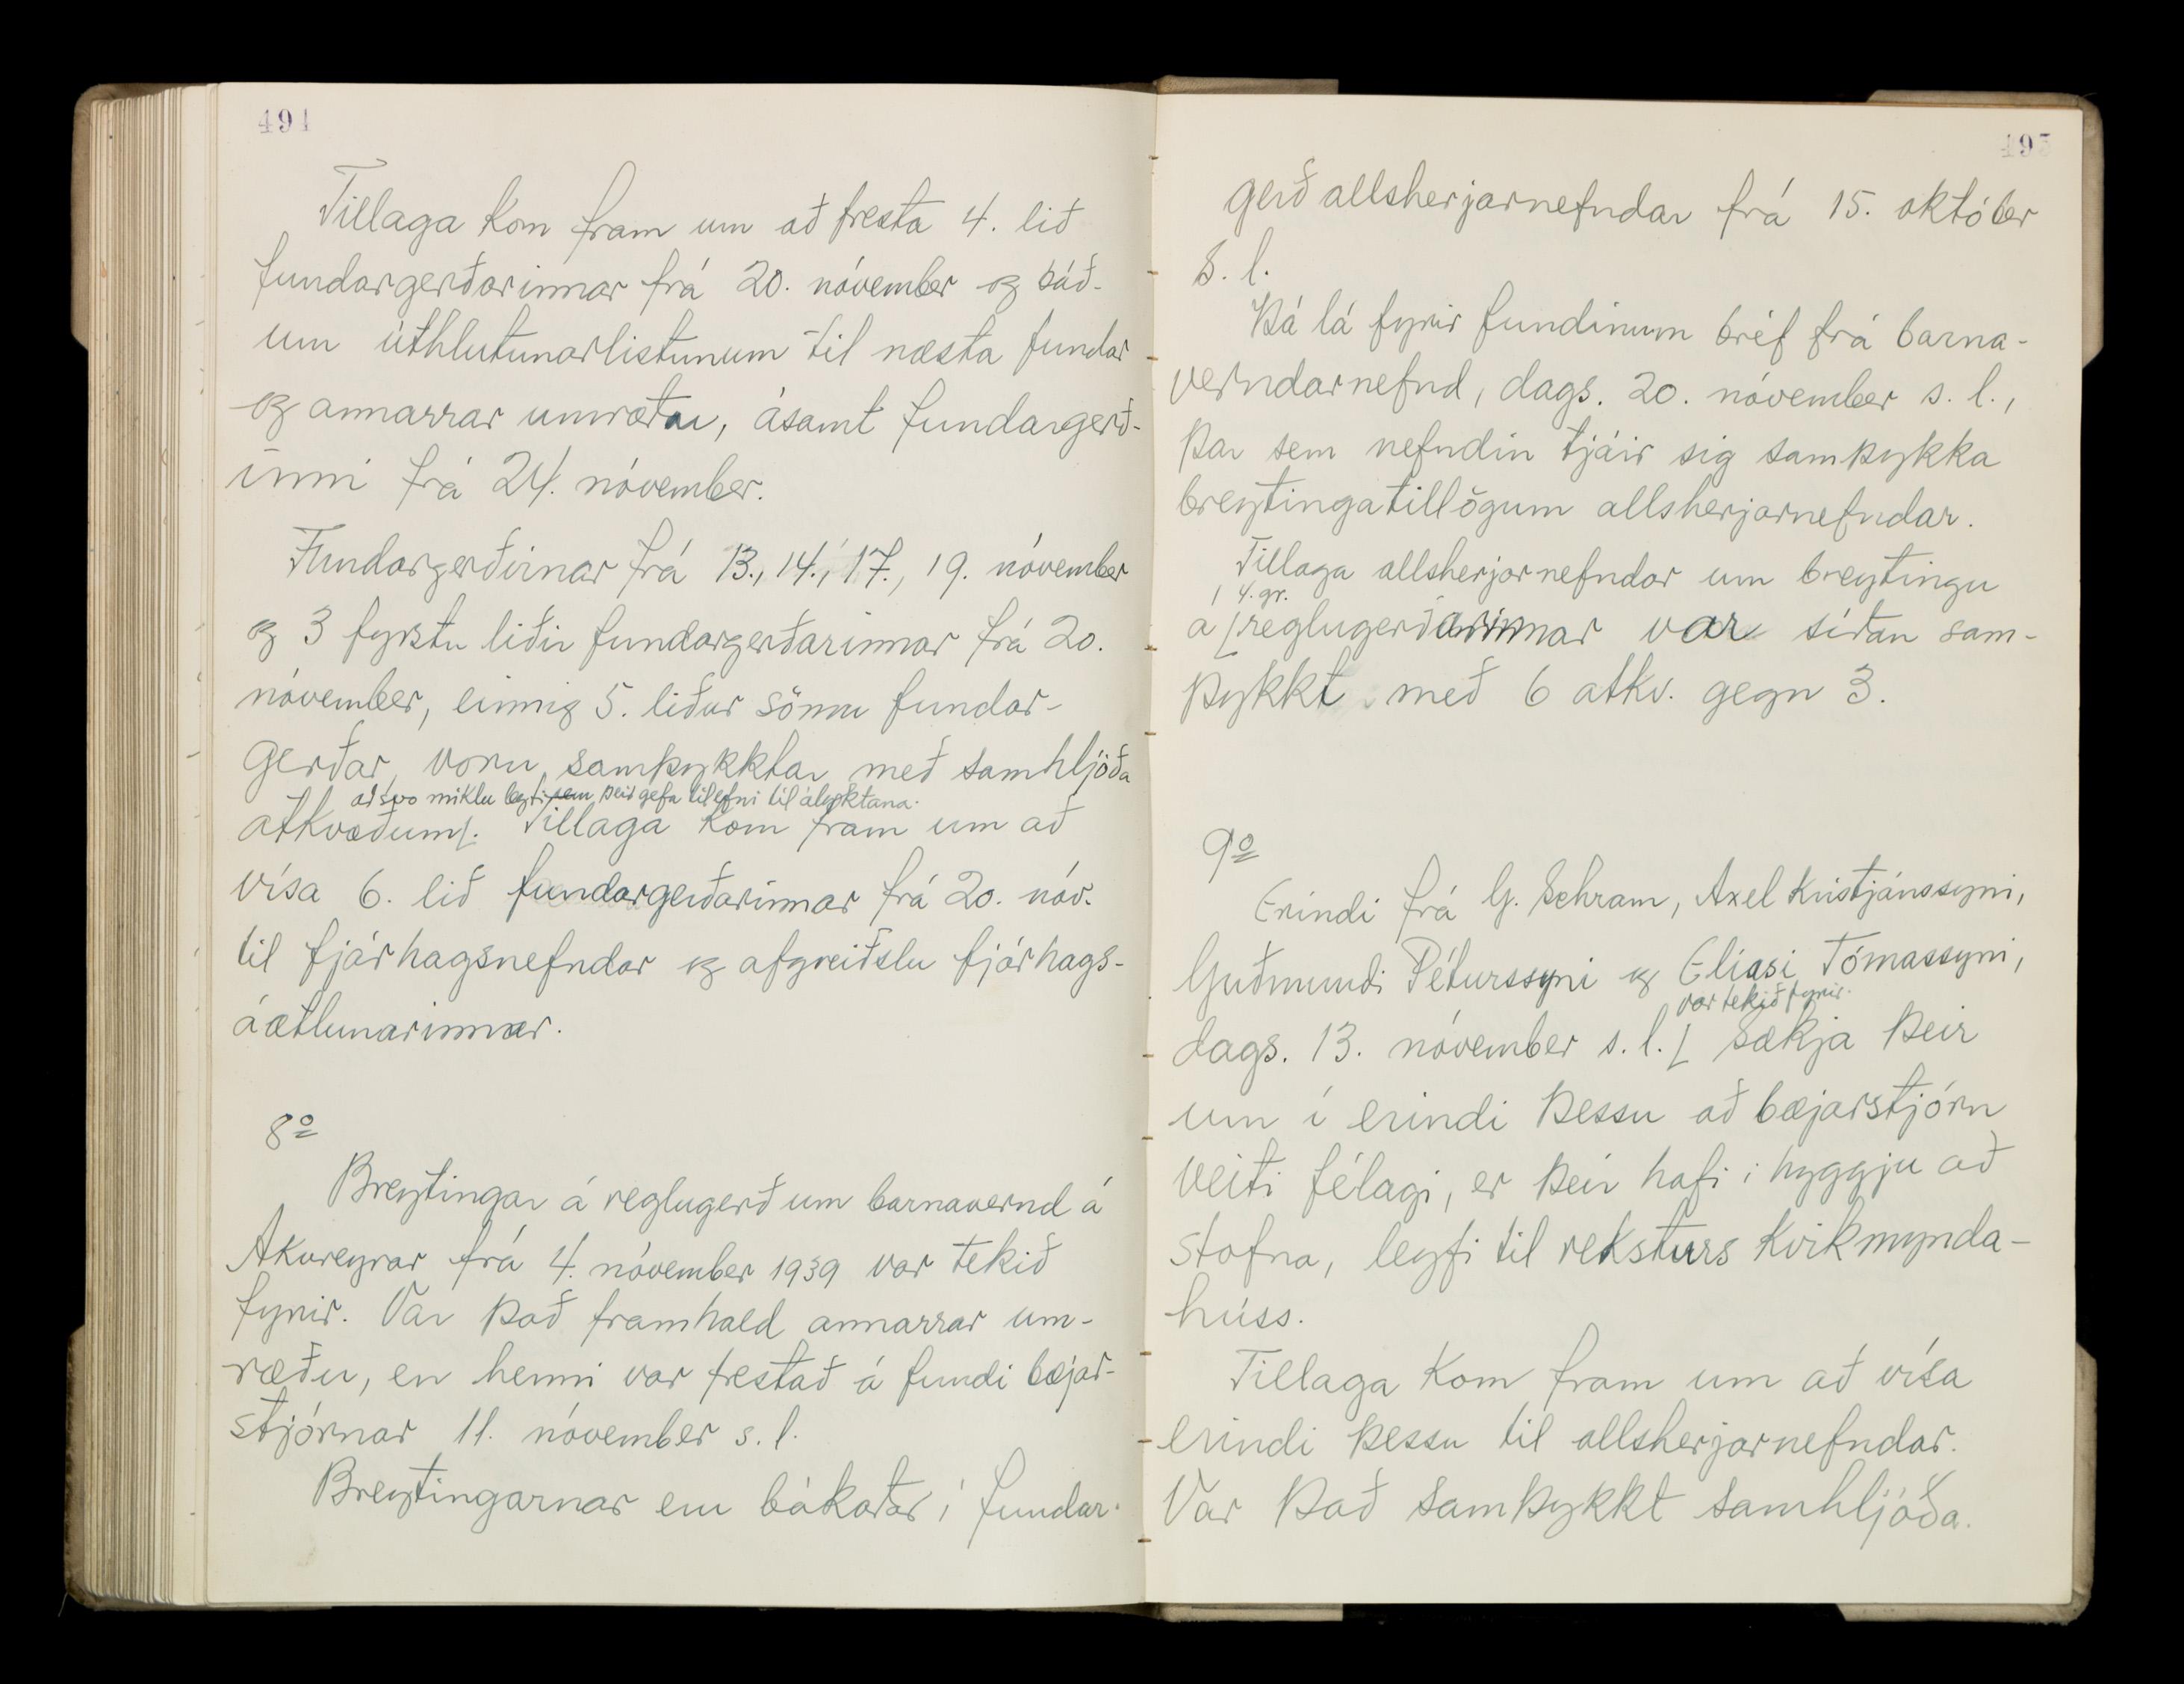 494
Tillaga kom fram um að fresta 4. lið
fundargerðarinnar frá 20. nóvember og báð-
um úthlutunarlistunum til næsta fundar
og annarrar umræðu, ásamt fundargerð-
inni frá 24. nóvember.
Fundargerðirnar frá 13., 14., 17., 19. nóvember
og 3 fyrstu liðir fundargerðarinnar frá 20.
nóvember, einnig 5. liður sömu fundar-
gerðar, voru samþykktar með samhljóða
að svo miklu leyti sem þeir gefa tilefni til ályktana.
atkvæðum. Tillaga kom fram um að
vísa 6. lið fundargerðarinnar frá 20. nóv.
til fjárhagsnefndar og afgreiðslu fjárhags-
áætlunarinnar.
8º
Breytingar á reglugerð um barnavernd á
Akureyrar frá 4. nóvember 1939 var tekið
fyrir. Var það framhald annarrar um-
ræðu, en henni var frestað á fundi bæjar-
stjórnar 11. nóvember s. l.
Breytingarnar eru bókaðar í fundar-
495
gerð allsherjarnefndar frá 15. október
s. l.
Þá lá fyrir fundinum bréf frá barna-
verndarnefnd, dags. 20. nóvember s. l.,
þar sem nefndin tjáir sig samþykka
breytingatillögum allsherjarnefndar.
Tillaga allsherjarnefndar um breytingu
4. gr.
á reglugerðarinnar var síðan sam-
þykkt með 6 atkv. gegn 3.
9º
Erindi frá G. Schram, Axel Kristjánssyni,
Guðmundi Péturssyni og Elíasi Tómassyni,
var tekið fyrir.
dags. 13. nóvember s. l. Sækja þeir
um í erindi þessu að bæjarstjórn
veiti félagi, er þeir hafi í hyggju að
stofna, leyfi til reksturs kvikmynda-
húss.
Tillaga kom fram um að vísa
erindi þessu til allsherjarnefndar.
Var það samþykkt samhljóða.